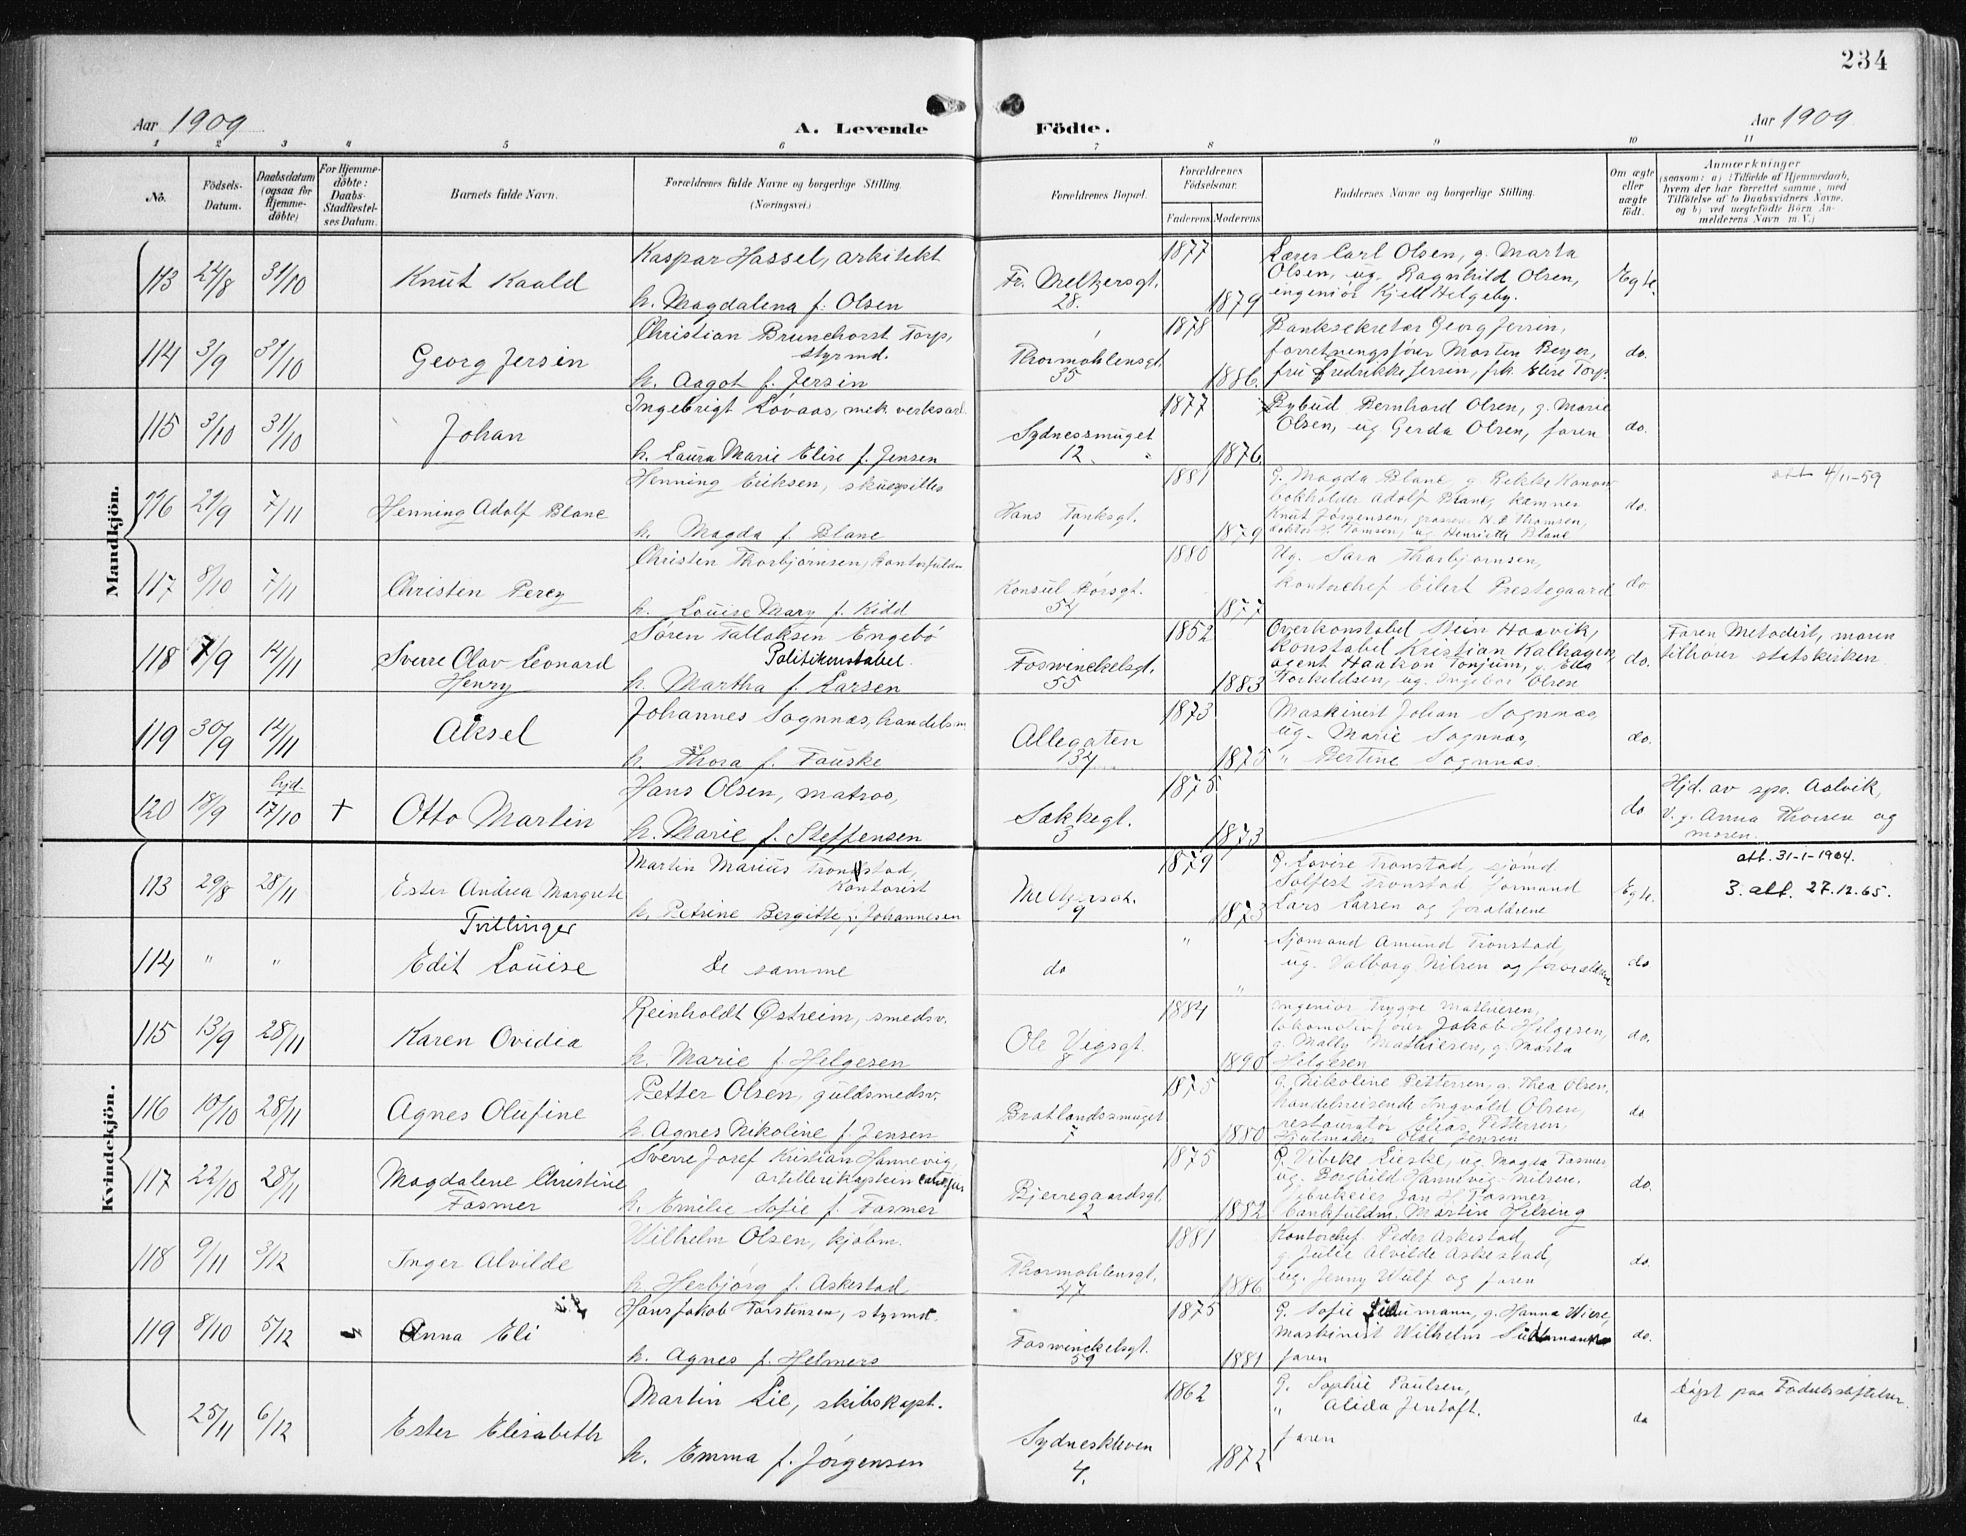 234
Aar 1909
A. Levende
Födte.
Aar 1909
1 2 3 4 5 6 7 8 9 10 11
No.
Födsels-
Datum.
Daabsdatum
(ogsaa for
Hjemme-
döbte)
For Hjemme-
döbte:
Daabs-
Stadfæstel-
ses Datum.
Barnets fulde Navn.
Forældrenes fulde Navne og borgerlige Stilling.
(Næringsvei.)
Forældrenes Bopæl.
Forældrenes
Födselsaar.
Faderens. Moderens.
Faddernes Navne og borgerlige Stilling.
Om ægte
eller
uægte
födt.
Anmærkninger
(saasom: a) i Tilfælde af Hjemmedaab,
hvem der har forrettet samme, med
Tilföielse af to Daabsvidners Navne,
og b) ved uægtefödte Börn An-
melderens Navn m. V.)
Mandkjön.
113 24/8 31/10 Knut Kaald
Kaspar Hassel, arkitekt
h. Magdalena f. Olsen
Fr. Meltzersgt.
28.
1877
1879
Lærer Carl Olsen, g. Marta
Olsen, ug. Ragnhild Olsen,
ingeniör Kjell Helgeby.
Egte.
114 3/9 31/10 Georg Jersin
Christian Brunchorst Torp,
styrmd.
h. Aagot f. Jersin
Thormohlensgt.
35
1878
1886.
Banksekretær Georg Jersin,
forretningsfører Morten Beyer,
fru Fredrikke Jersin, frk Elise Torp.
do.
115 3/10 31/10 Johan
Ingebrigt Lóvaas, mek verksarb.
h. Laura Marie Elise f. Jensen
Sydnessmuget
12.
1877
1876.
Bybud Bernhard Olsen, g. Marie
Olsen, ug Gerda Olsen, faren
do.
116 21/9 7/11 Henning Adolf Blanc
Henning Eriksen, skuespiller
h. Magda f. Blanc
Hans Tanksgt.
1
1881
1879
g. Magda Blanc, g. Rekke Kanow
bokholder Adolf Blanc, kæmner
Knut Jørgensen, grosserer H. Thomsen,
doktor G. Tomsen, ug Henriette Blanc
do.
att 4/11-59
117 8/10 7/11 Christen Percy
Christen Thorbjørnsen, kontorfuldm
h. Louise Mary f. Kidd
Konsul Børsgt.
54
1880
1877
Ug. Sara Thorbjørnsen,
kontorchef Eilert Prestegaard
do
118 7/9 14/11 Sverre Olav Leonard
Henry
Sören Tallaksen Engebö
Politikonstabel.
h. Martha f. Larsen
Foswinckelsgt.
55
1852
1883
Overkonstabel Stein Haavik,
Konstabel Kristian Kalhagen,
agent Haakon Tonjum, g. Ella
Torkildsen, ug. Ingebor Olsen
do.
Faren Metodist, moren
tilhører statskirken
119 30/9 14/11 Aksel
Johannes Sognnæs, handelsm
h. Thora f. Fauske
Allegaten
134
1873
1875
Maskinist Johan Sognnæs,
ug. Marie Sognnæs,
" Bertine Sognnæs.
do.
120 18/9 hjd. 17/10 + Otto Martin
Hans Olsen, matros,
h. Marie f. Steffensen
Sækkegt.
3
1875
1873
do
Hjd. av spr. Aalvik,
V. g. Anna Thorsen og
moren.
Kvindekjön.
113 29/8 28/11 Ester Andrea Margrete
Tvillinger
Martin Marius Tronstad,
Kontorist
h. Petrine Bergitte f. Johannesen
Meltzersgt.
9
1879
1873
G. Lovise Tronstad, sjómd
Solfest Tronstad, formand
Lars Larsen og forældrene
Egte.
att. 31-1-1904.
3. att. 27.12.65.
114 " " Edit Louise
De samme
do
"
"
Sjømand Amund Tronstad,
ug. Valborg Nilsen og forældrene
do
115 13/9 28/11 Karen Ovidia
Reinholdt Østreim, smedsv.
h. Marie f. Helgesen
Ole Vigsgt.
8
1884
1890
Ingeniør Trygve Mathiesen,
lokomotivfører Jakob Helgesen,
g. Mally Mathiesen, g. Marta
Helgesen
do.
116 10/10 28/11 Agnes Olufine
Petter Olsen, guldsmedsv.
h. Agnes Nikoline f. Jensen
Bratlandssmuget
7
1875
1880
g. Nikoline Pettersen, g. Thea Olsen,
handelsreisende Ingvald Olsen,
restauratør Elias Pettersen,
Hjulmaker Olai Jensen
do
117 22/10 28/11 Magdalene Christine
Fasmer
Sverre Josef Kristian Hannevig,
artillerikaptein
h. Emilie Sofie f. Fasmer
Bjerregaardsgt.
2
1875
1882
G. Vibeke Lieske, ug. Magda Fasmer
ug. Borghild Hannevig-Nilsen.
Jan H. Fasmer,
bankfuldm. Martin Hilsing
do.
118 9/11 3/12 Inger Alvilde
Wilhelm Olsen, kjøbm.
h. Herbjörg f. Askestad
Thormohlensgt.
47
1881
1886
Kontorchef Peder Askestad,
g. Julie Alvilde Askestad,
ug. Jenny Wulf og faren
do.
119 8/10 5/12 Anna Eli
Hans Jakob Torstensen, styrmd.
h. Agnes f. Helmers
Foswinckelsgt.
59
1875
1881
G. Sofie Südumann, g. Hanna Wiese,
maskinist Wilhelm
faren
do.
25/11 6/12 Ester Elisabeth
Martin Lie, skibskapt.
h. Emma f. Jórgensen
Sydneskleven
4.
1862
1872
G. Sophie Paulsen,
" Alida Jentoft.
faren
do
Døpt paa Fødselsstiftelsen.